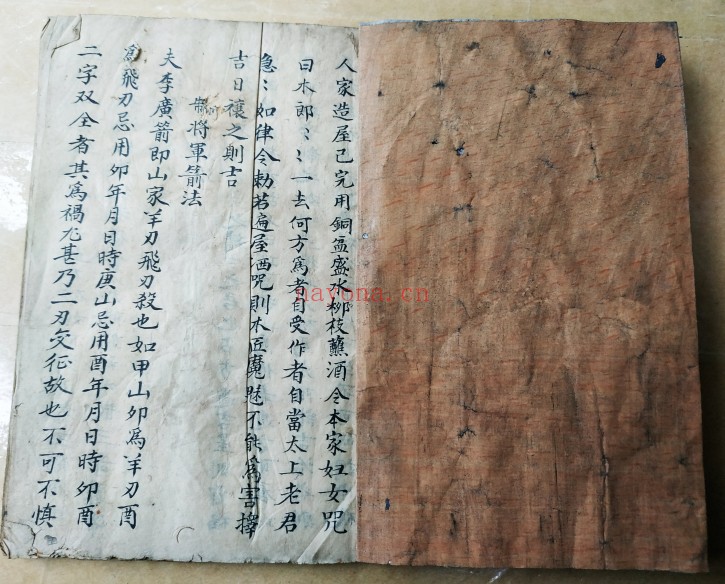 人家造屋已完用銅盆盛水柳枝蘸洒令本家妇女咒
曰木郎〻〻一去何方為者自受作者自當太上老君
急〻如律令勅若遍屋洒咒則木匠魔魅不能為害擇
吉日禳之則吉
將軍箭法
夫李廣箭即山家羊刃飛刃殺也如甲山夘為羊刃酉
為飛刃忌用夘年月日時庚山忌用酉年月日時夘酉
二字双全者其為禍尤甚乃二刃交征故也不可不慎
nayona.cn